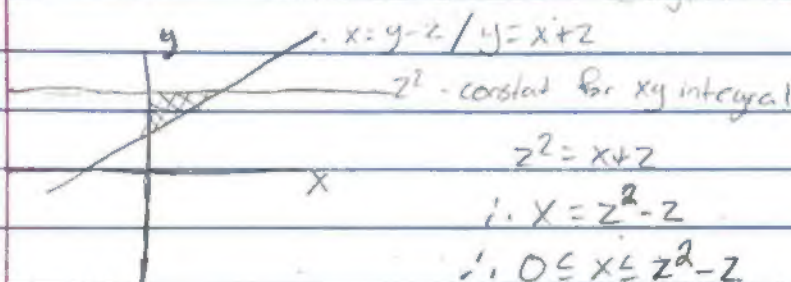 y
x=y-z / y=x+z
z² - constat for xy integral
z² = x+z
x
∴ x = z²-z
∴ 0 ≤ x ≤ z²-z